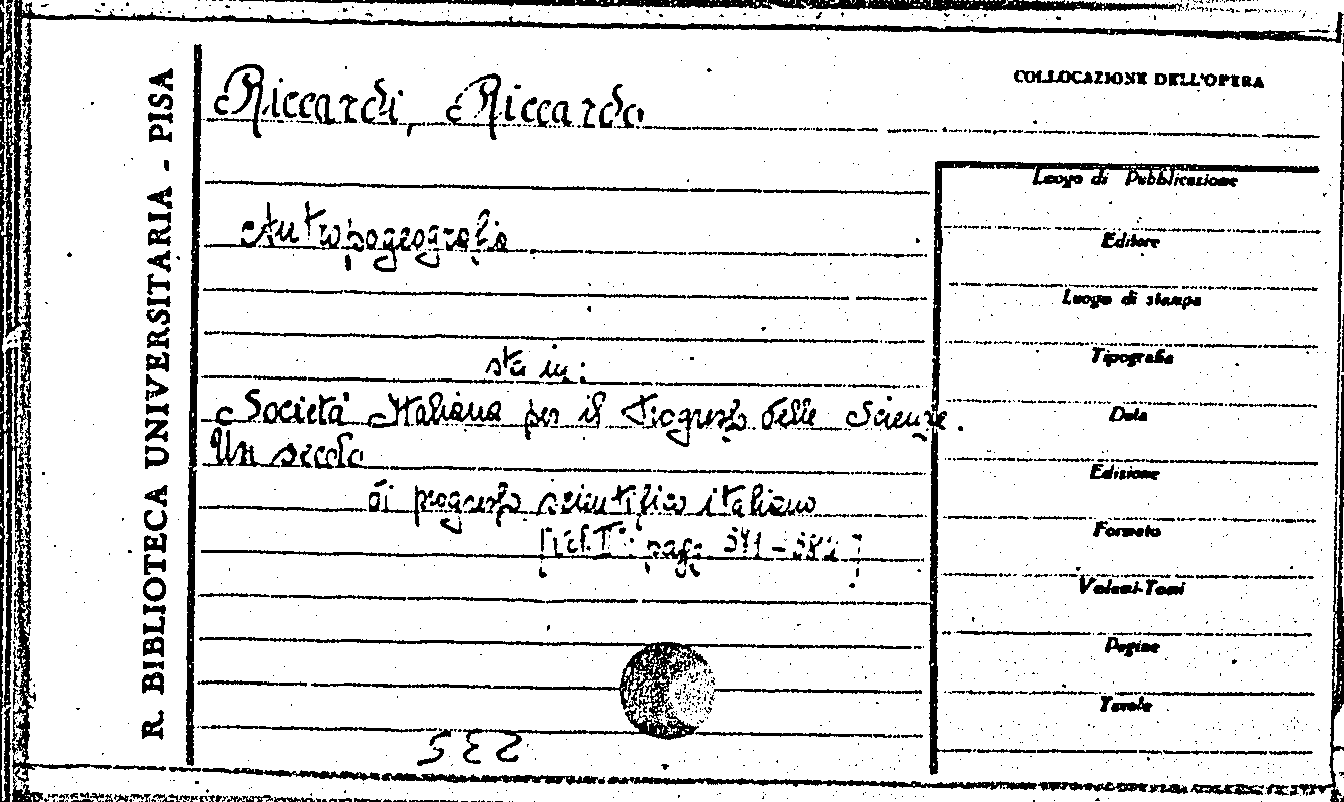 R. BIBLIOTECA UNIVERSITARIA - PISA
Riccardi, Riccardo
COLLOCAZIONE DELL'OPERA
Antropogeografia
sta in:
Società Italiana per il Progresso delle Scienze.
Un secolo
di progresso scientifico italiano
[vol. I° pagg.
Luogo di Pubblicazione
Editore
Luogo di stampa
Tipografia
Data
Edizione
Formato
Volumi-Tomi
Pagine
Tavole